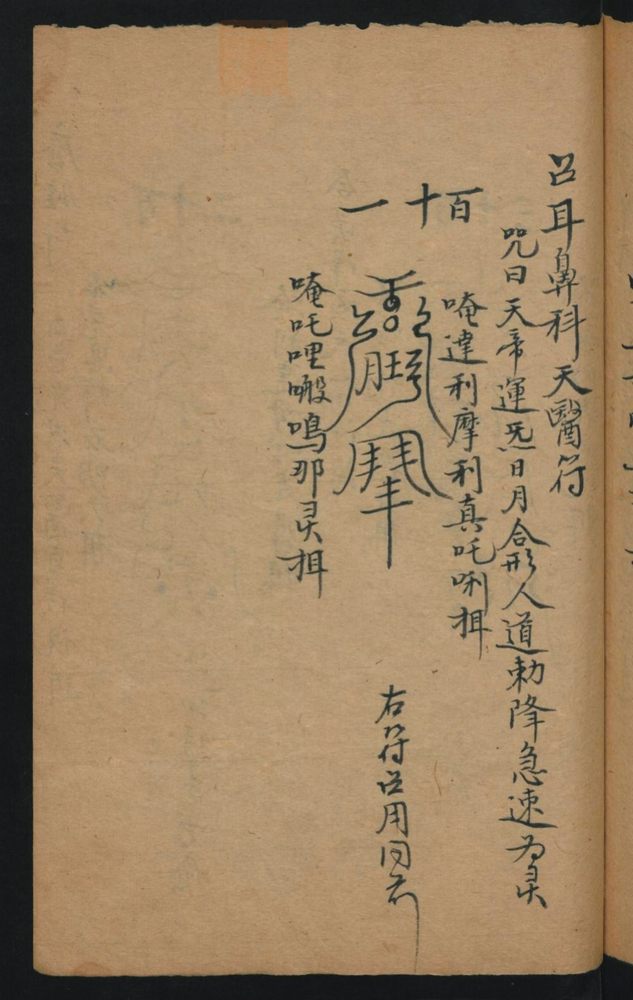 召耳鼻科天醫符
咒曰天帝運炁日月合形人道勅降急速为灵
百十一
唵達利摩利真吒唎揖
唵吒哩囎嗚那灵揖
右符召用同前